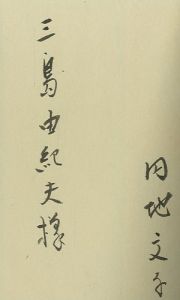 三島由紀夫様
円地文子